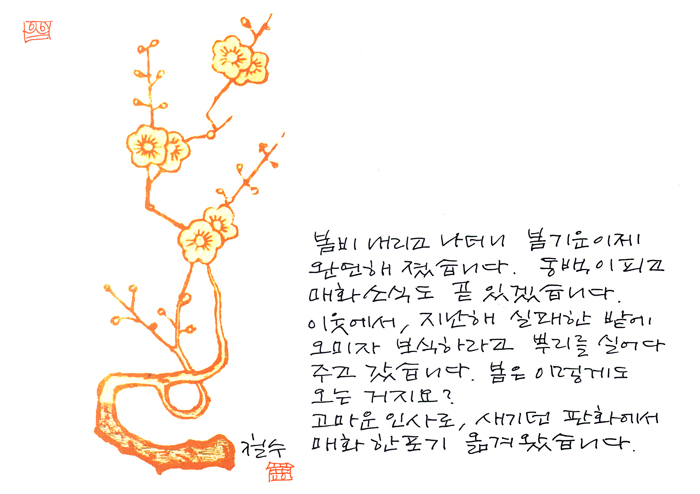 봄비 내리고 나더니 봄기운이제
완연해 졌습니다. 동백이피고
매화소식도 곧 있겠습니다.
이웃에서, 지난해 실패한 밭에
오미자 보식하라고 뿌리를 실어다
주고 갔습니다. 봄은 이렇게도
오는 거지요?
고마운 인사로, 새기던 판화에서
매화 한포기 옮겨왔습니다.
철수